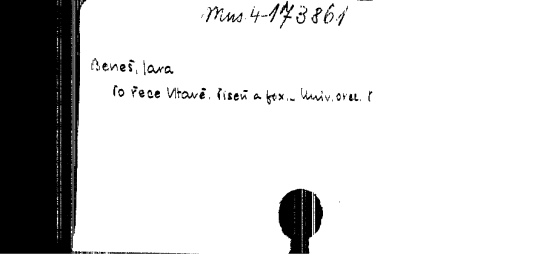 Mus. 4-173861
Beneš, Jara
Po řece Vltavě. Píseň a fox. - Univ. orch. P